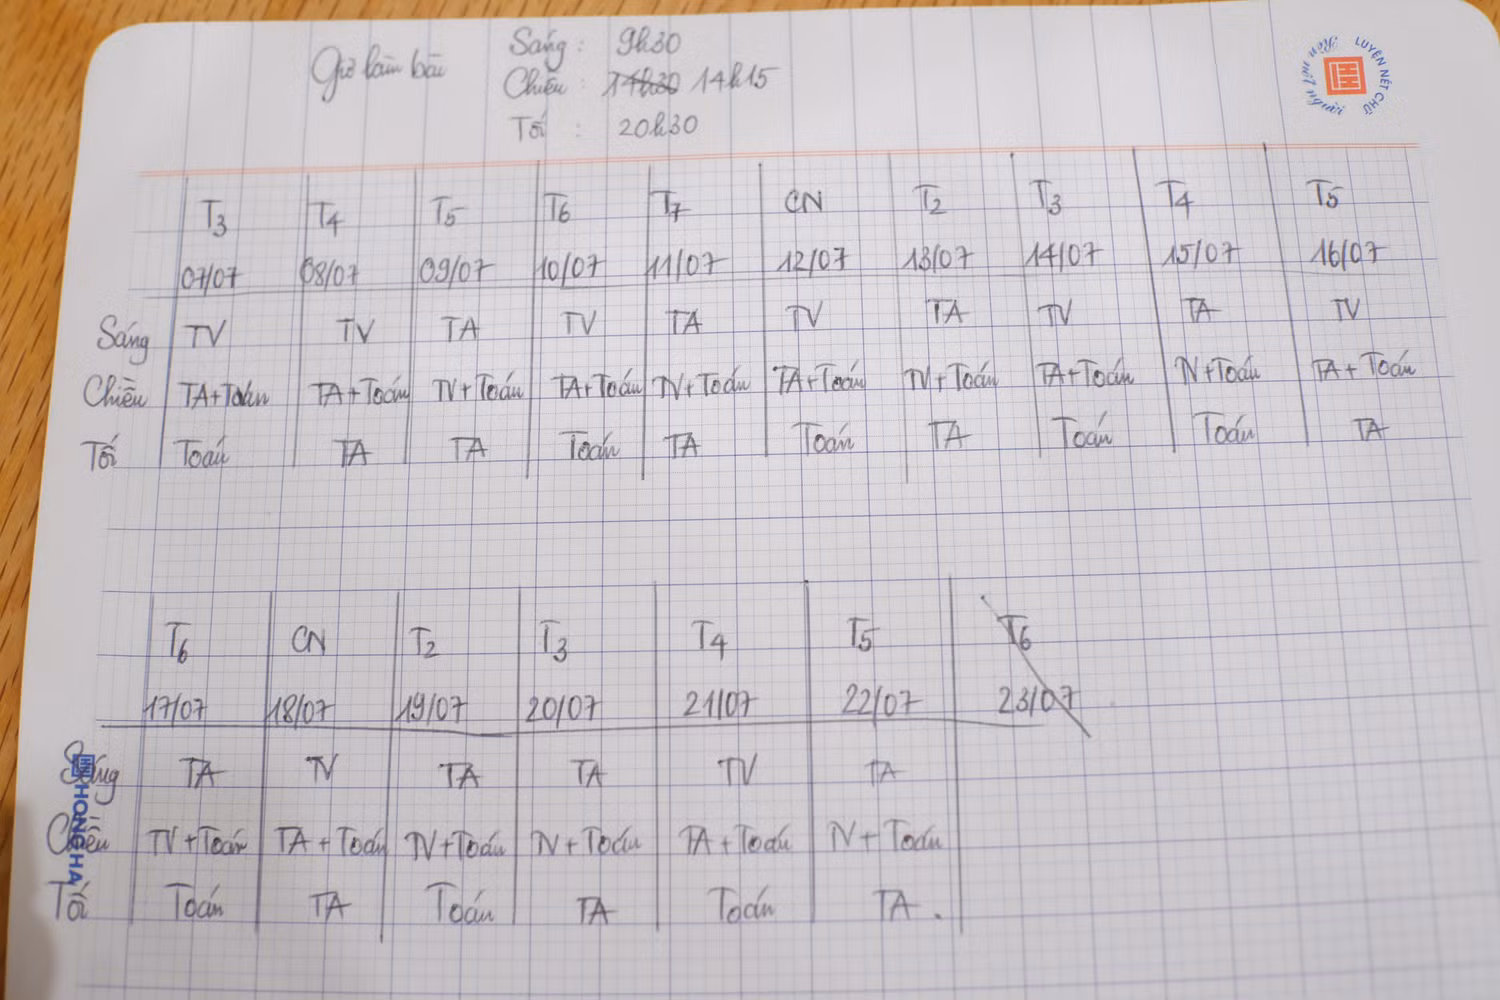 Giờ làm bài
Sáng : 9h30
Chiều : 14h30 14h15
Tối : 20h30
LUYỆN NÉT CHỮ
Rèn nết người
T3 T4 T5 T6 T7 CN T2 T3 T4 T5
07/07 08/07 09/07 10/07 11/07 12/07 13/07 14/07 15/07 16/07
Sáng TV TV TA TV TA TV TA TV TA TV
Chiều TA+Toán TA+Toán TV+Toán TA+Toán TV+Toán TA+Toán TV+Toán TA+Toán TV+Toán TA+Toán
Tối Toán TA TA Toán TA Toán TA Toán Toán TA
T6 CN T2 T3 T4 T5 T6
17/07 18/07 19/07 20/07 21/07 22/07 23/07
Sáng TA TV TA TA TV TA
Chiều TV+Toán TA+Toán TV+Toán TV+Toán TA+Toán TV+Toán
Tối Toán TA Toán TA Toán TA.
HONG HA